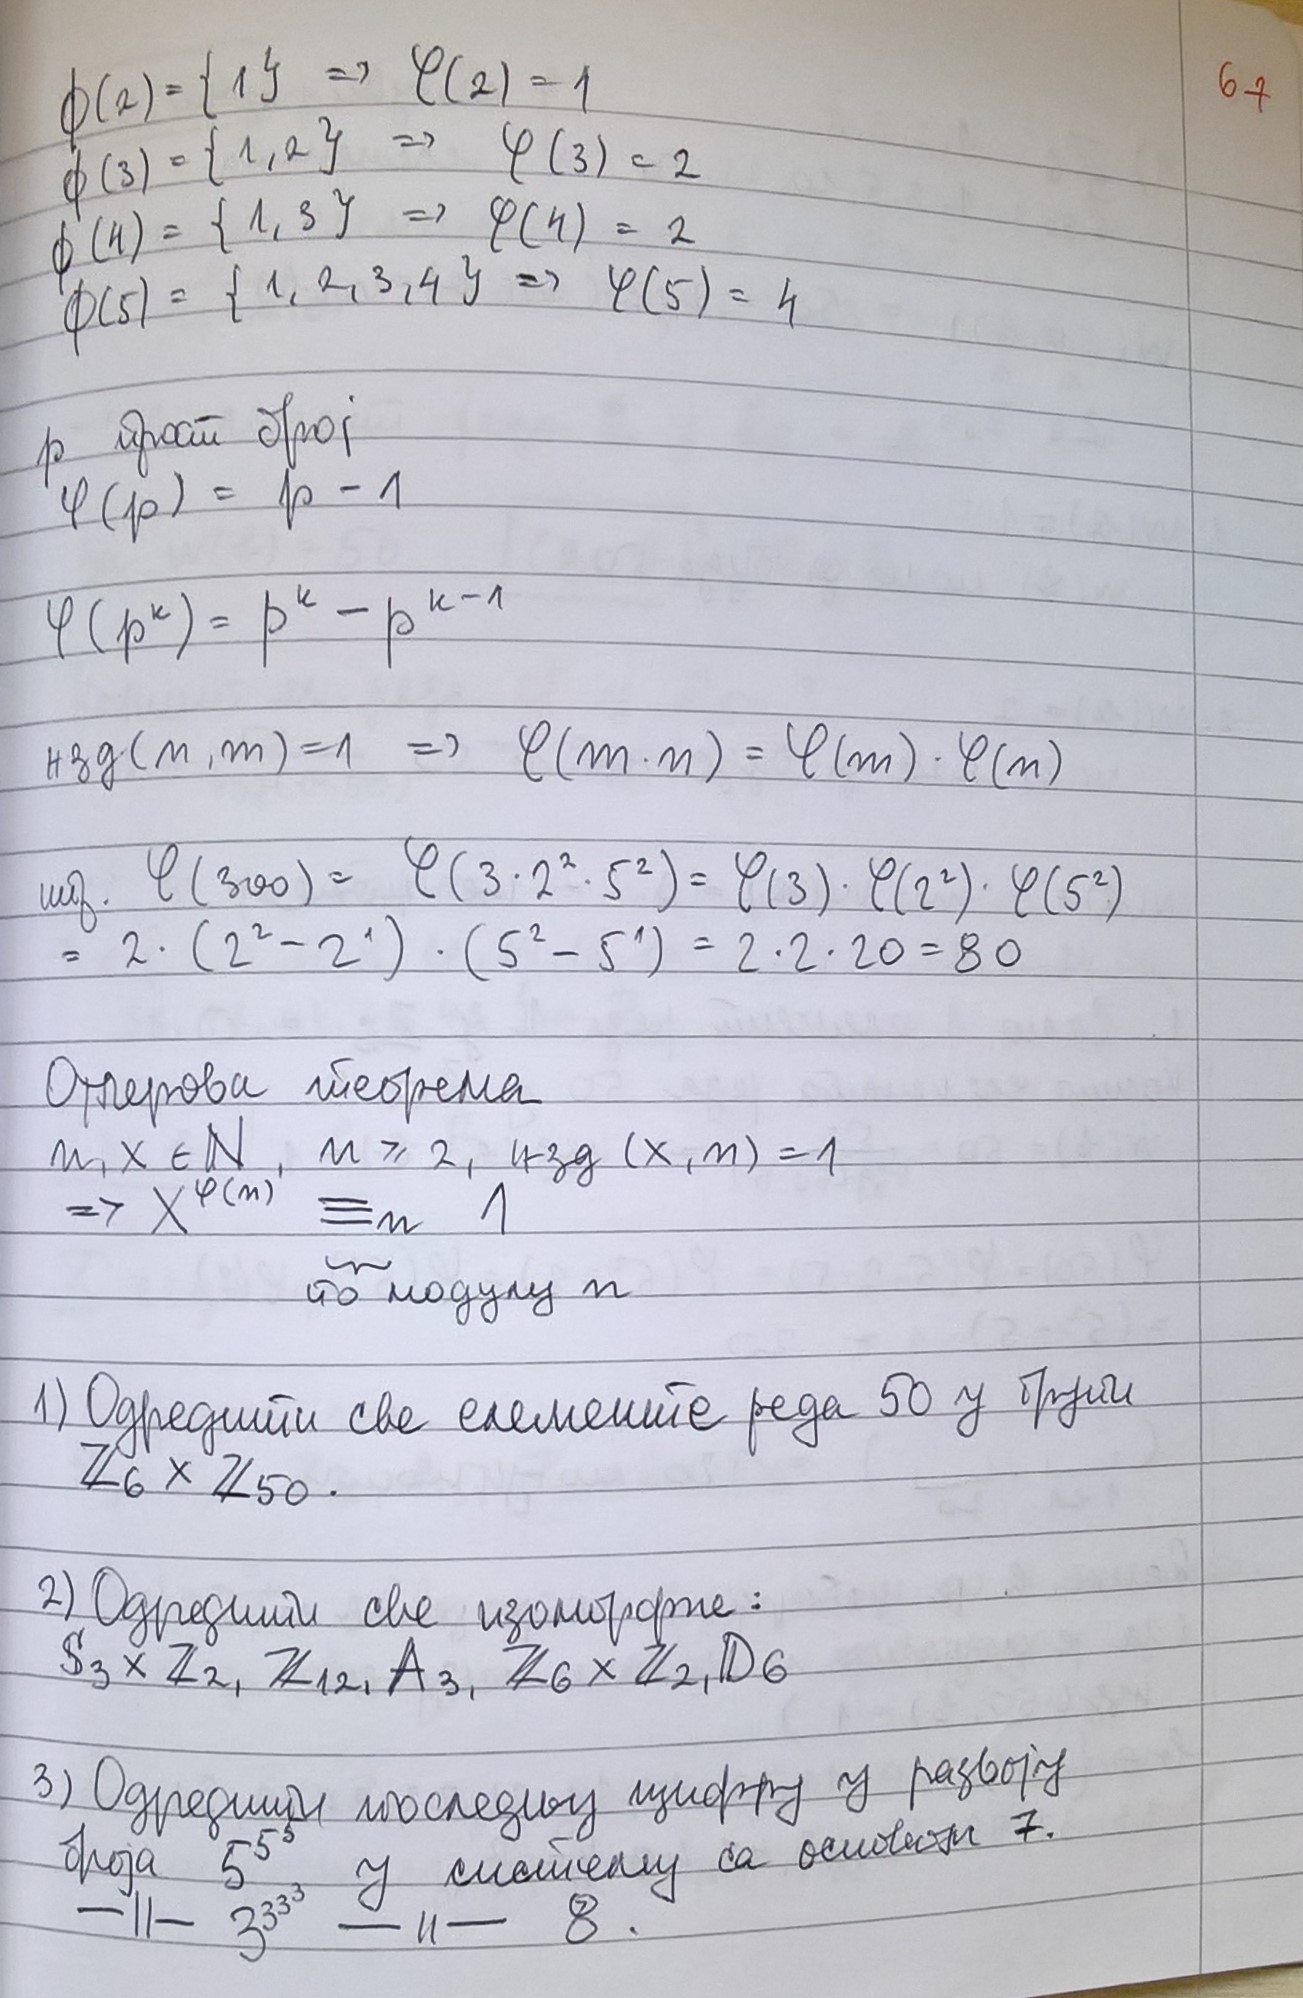 67
ϕ(2) = {1} => φ(2) = 1
ϕ(3) = {1,2} => φ(3) = 2
ϕ(4) = {1,3} => φ(4) = 2
ϕ(5) = {1,2,3,4} => φ(5) = 4
p прост број
φ(p) = p - 1
φ(pᵏ) = pᵏ - pᵏ⁻¹
нзд(n,m) = 1 => φ(m·n) = φ(m)·φ(n)
φ(300) = φ(3·2²·5²) = φ(3)·φ(2²)·φ(5²)
= 2·(2²-2¹)·(5²-5¹) = 2·2·20 = 80
Ојлерова теорема
n, x ∈ ℕ, n ≥ 2, нзд(x,n) = 1
=> x^φ(n) ≡ₙ 1
по модулу n
1) Одредити све елементе реда 50 у групи
ℤ₆ × ℤ₅₀.
2) Одредити све изоморфне:
S₃ × ℤ₂, ℤ₁₂, A₃, ℤ₆ × ℤ₂, D₆
3) Одредити последњу цифру у развоју
броја 5^5^5 у систему са основом 7.
—||— 3^3^3^3 —||— 8.